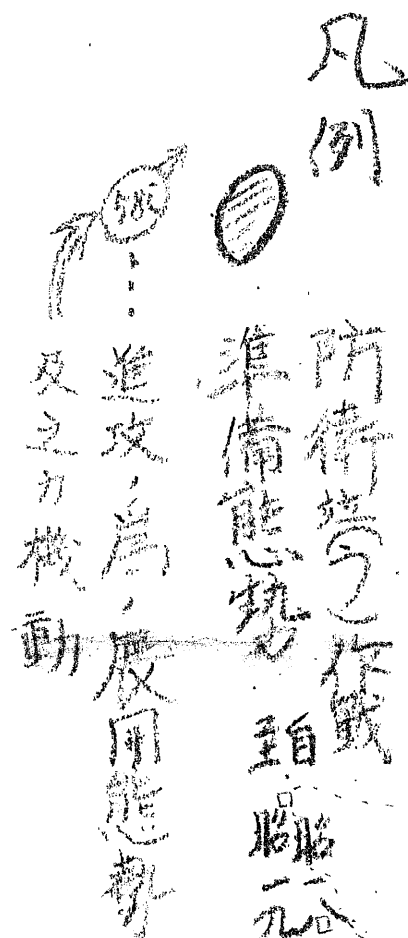 凡例
防衛 作戦
準備態勢
自 昭一八
至 昭一九
58i
進攻ノ為ノ展開態勢
及之ガ機動